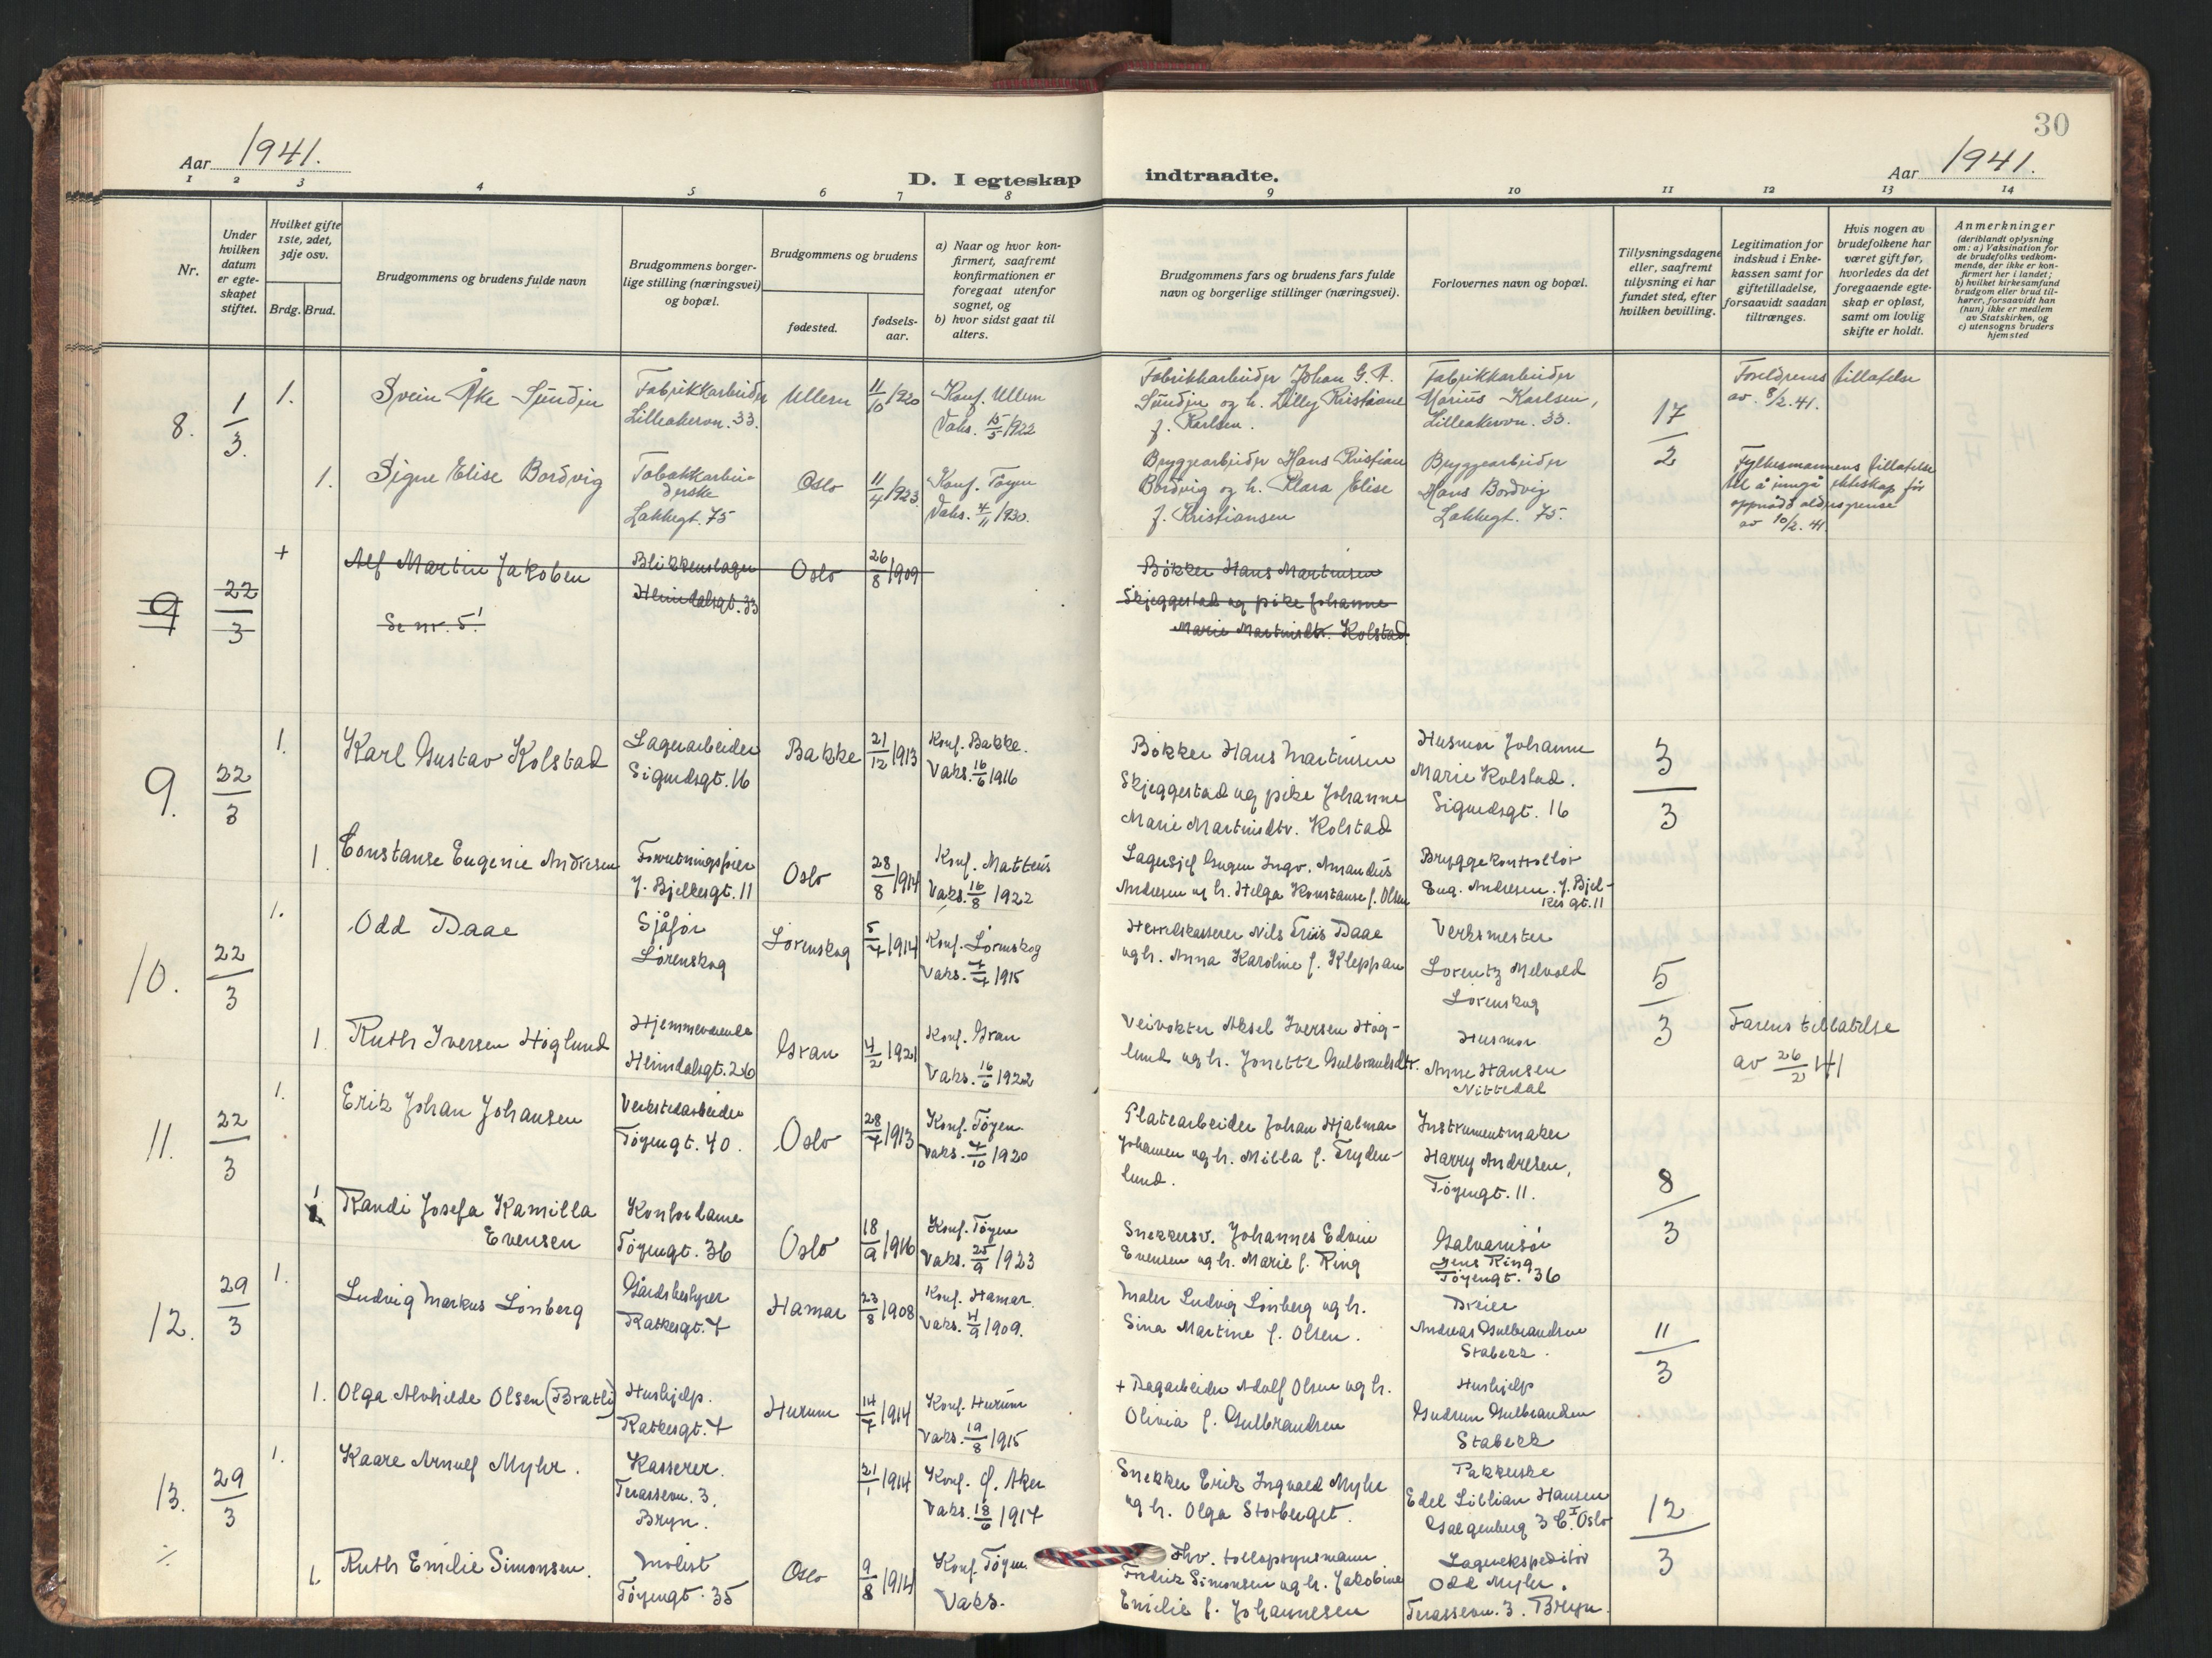 30
Aar 1941.
D. I egteskap indtraadte.
Aar 1941.
1 2 3 4 5 6 7 8 9 10 11 12 13 14
Nr.
Under hvilken datum er egteskapet stiftet.
Hvilket gifte 1ste, 2det, 3dje osv.
Brdg. Brud.
Brudgommens og brudens fulde navn
Brudgommens borgerlige stilling (næringsvei) og bopæl.
Brudgommens og brudens
fødested.
fødselsaar.
a) Naar og hvor konfirmert, saafremt konfirmationen er foregaat utenfor sognet, og
b) hvor sidst gaat til alters.
Brudgommens fars og brudens fars fulde navn og borgerlige stillinger (næringsvei).
Forlovernes navn og bopæl.
Tillysningsdagene eller, saafremt tillysning ei har fundet sted, efter hvilken bevilling.
Legitimation for indskud i Enkekassen samt for giftetilladelse, forsaavidt saadan tiltrænges.
Hvis nogen av brudefolkene har været gift før, hvorledes da det foregaaende egteskap er opløst, samt om lovlig skifte er holdt.
Anmerkninger
(deriblandt oplysning om: a) Vaksination for de brudefolks vedkommende, der ikke er konfirmert her i landet; b) hvilket kirkesamfund brudgom eller brud tilhører, forsaavidt han (hun) ikke er medlem av Statskirken, og c) utensogns bruders hjemsted
8. 1/3. 1.
Svein Åke Sundin
Fabrikkarbeider
Lilleakervn. 33.
Ullern 11/10 1920
Konf. Ullern
Vaks. 15/5 1922
Fabrikkarbeider Johan G. A.
Sundin og h. Lilly Kristiane
f. Karlsen.
Fabrikkarbeider
Marius Karlsen,
Lilleakervn. 33.
17/2
Foreldrenes tillatelse
av 8/2. 41.
1.
Signe Elise Bordvig
Tobakkarbeiderske
Lakkegt. 75
Oslo 11/4 1923.
Konf. Tøyen
Vaks. 4/11 1930.
Bryggearbeider Hans Kristian
Bordvig og h. Klara Elise
f. Kristiansen
Bryggearbeider
Hans Bordvig
Lakkegt. 75.
Fylkesmannens tillatelse
til å inngå ekteskap før
oppnådd aldersgrense
av 10/2. 41.
9 22/3 +
Alf Martin Jakobsen
Se nr. 5!
Blikkenslager
Heimdalsgt. 33
Oslo 26/8 1909
Bøkker Hans Martinsen
Skjeggestad og pike Johanne
Marie Martinsdtr. Kolstad
9. 22/3 1.
Karl Gustav Kolstad
Lagerarbeider
Sigurdsgt. 16
Bakke 21/12 1913
Konf. Bakke.
Vaks. 16/6 1916
Bøkker Hans Martinsen
Skjeggestad og pike Johanne
Marie Martinsdtr. Kolstad
Husmor Johanne
Marie Kolstad.
Sigurdsgt. 16
3/3
1.
Constanse Eugenie Andresen
Forretningsfører
J. Bjelkesgt. 11
Oslo 28/8 1914
Konf. Matteus
Vaks. 16/8 1922
Lagersjef Eugen Ingv. Amandus
Andresen og h. Helga Konstanse f. Olsen
Bryggekontrollør
Eug. Andresen. J. Bjelkes gt. 11
10. 22/3 1.
Odd Daae
Sjåfør
Lørenskog
Lørenskog 5/7 1914
Konf. Lørenskog
Vaks. 7/7 1915
Herredskasserer Nils Friis Daae
og h. Anna Karoline f. Kleppan
Verksmester
Lorentz Melvold
Lørenskog
5/3
1
Ruth Iversen Høglund
Hjemmeværende
Heimdalsgt. 26
Gran 4/2 1921
Konf. Gran
Vaks. 16/6 1922
Veivokter Aksel Iversen Høglund og h. Jonette Gulbrandsdtr.
Husmor
Anne Hansen
Nittedal
Farens tillatelse
av 26/2 41
11. 22/3 1.
Erik Johan Johansen
Verkstedarbeider
Tøyengt. 40.
Oslo 28/7 1913
Konf. Tøyen
Vaks. 7/10 1920
Platearbeider Johan Hjalmar
Johansen og h. Milla f. Frydenlund.
Instrumentmaker
Harry Andresen,
Tøyengt. 11.
8/3
1
Randi Josefa Kamilla
Evensen
Kontordame
Tøyengt. 36
Oslo 18/9 1916
Konf. Tøyen
Vaks. 25/9 1923
Snekkersv. Johannes Edvin
Evensen og h. Marie f. Ring
Galvanisør
Jens Ring
Tøyengt. 36
12. 29/3 1.
Ludvig Markus Lønberg
Gårdsbestyrer
Ratkesgt. 7
Hamar 23/8 1908
Konf. Hamar.
Vaks. 4/9 1909.
Maler Ludvig Lønberg og h.
Sina Martine f. Olsen.
Dreier
Andreas Gulbrandsen
Stabekk.
11/3
1.
Olga Alvhilde Olsen (Bratli)
Hushjelp.
Ratkesgt. 7
Hurum 14/7 1914
Konf. Hurum
Vaks. 19/8 1915
+ Dagarbeider Adolf Olsen og h.
Olivia f. Gulbrandsen
Hushjelp
Gudrun Gulbrandsen
Stabekk
13. 29/3 1.
Kaare Arnulf Myhr.
Kasserer.
Terassevn. 3.
Bryn.
21/1 1914
Konf. Ø. Aker
Vaks. 18/6 1917
Snekker Erik Ingvald Myhr
og h. Olga Storberget.
Pakkerske
Edel Lillian Hansen
Galgenberg 3 C.I Oslo
12/3
÷ 1.
Ruth Emilie Simonsen.
Modist
Tøyengt. 35
Oslo 9/8 1914
Konf. Tøyen
Vaks.
Fhv. tollopsynsmann
Fredrik Simonsen og h. Jakobine
Emilie f. Johannesen
Lagerekspeditør
Odd Myhr.
Terassevn. 3. Bryn.